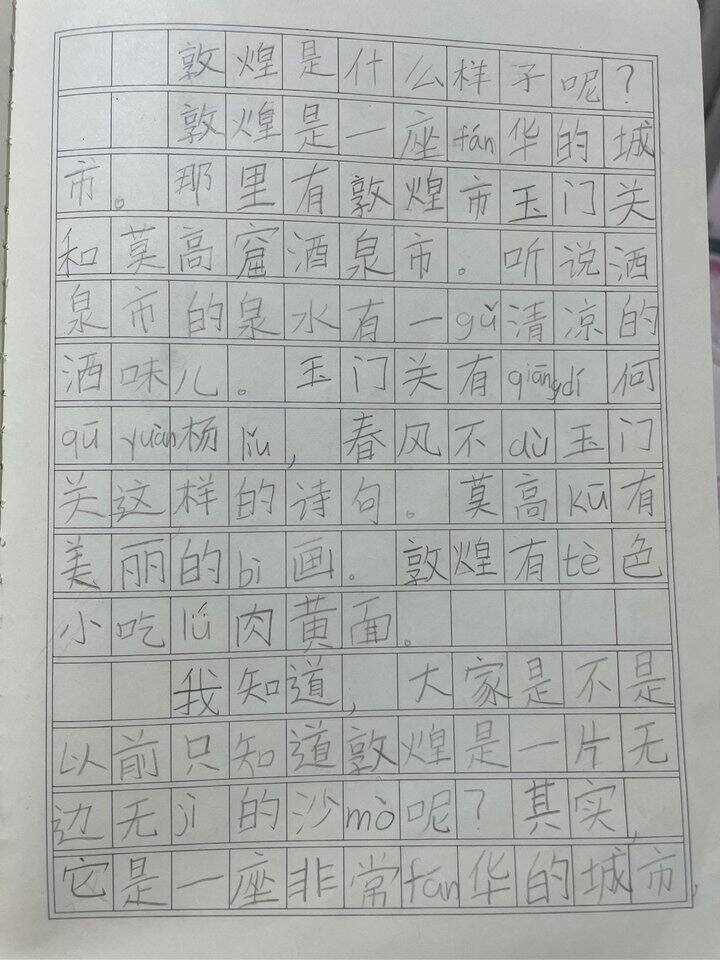 敦煌是什么样子呢？
敦煌是一座fán华的城
市。那里有敦煌市玉门关
和莫高窟酒泉市。听说酒
泉市的泉水有一gǔ清凉的
酒味儿。玉门关有qiāngdí何
qū yuàn杨liǔ，春风不dù玉门
关这样的诗句。莫高kū有
美丽的bì画。敦煌有tè色
小吃lǘ肉黄面。
我知道，大家是不是
以前只知道敦煌是一片无
边无jì的沙mò呢？其实，
它是一座非常fán华的城市，